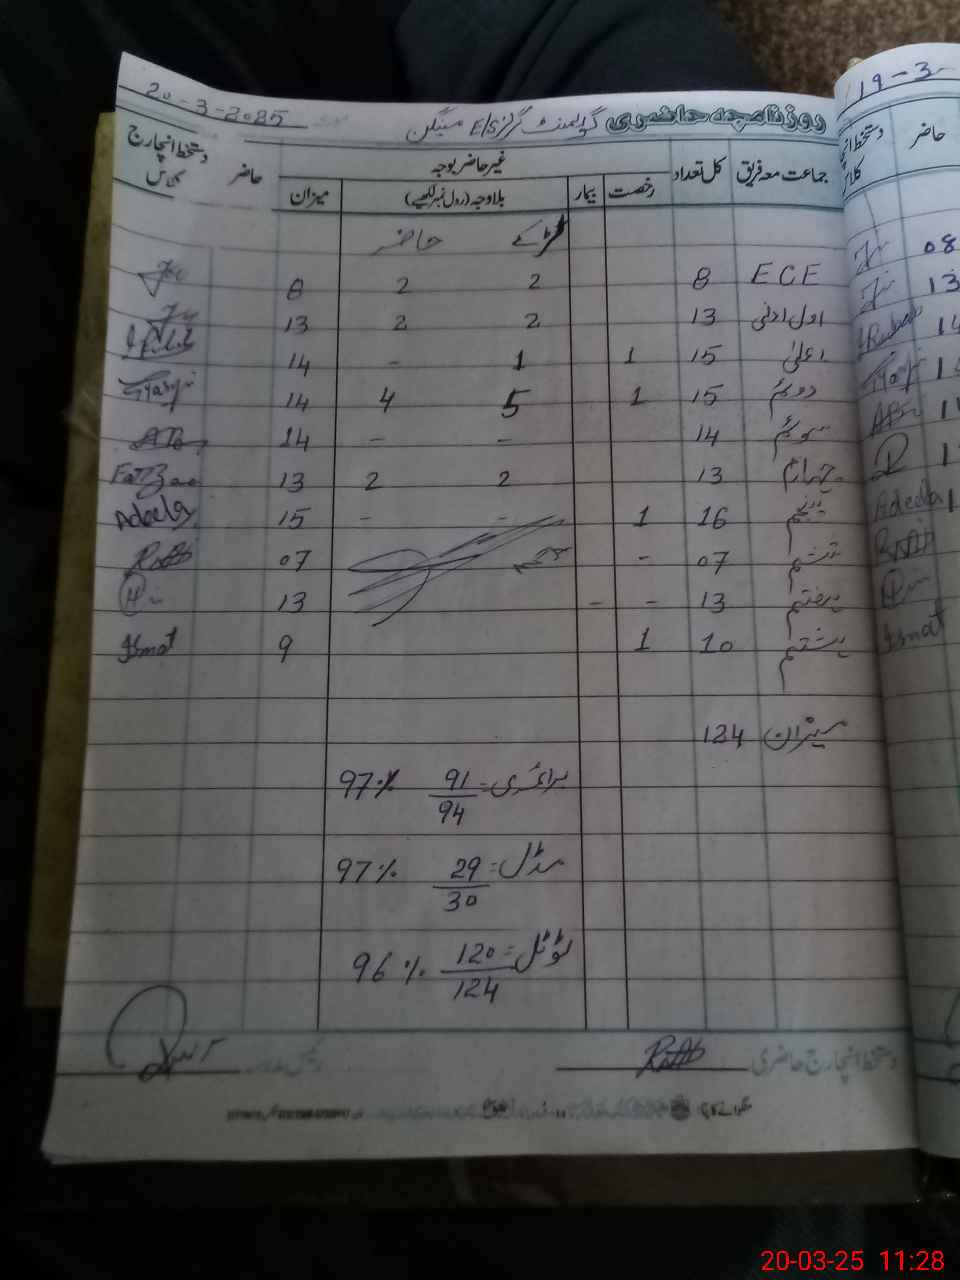 20-3-2025
روزنامچہ حاضری گورنمنٹ گرلز E/S
جماعت معہ فریق کل تعداد غیر حاضر بوجہ حاضر دستخط انچارج کلاس
رخصت بیمار بلاوجہ (رول نمبر لکھیے) میزان
لڑکے حاضر
ECE 8 2 2 8
اول ادنیٰ 13 2 2 13
اعلیٰ 15 1 1 - 14
دوئم 15 1 5 4 14
سوئم 14 - - 14
چہارم 13 2 2 13
پنجم 16 1 - - 15 Adeela
ششم 07 - 07
ہفتم 13 - - 13
ہشتم 10 1 9 Ismat
میزان 124
پرائمری = 91/94 97%
مڈل = 29/30 97%
ٹوٹل = 120/124 96%
دستخط انچارج حاضری
19-3
حاضر
دستخط انچارج
08
13
Adeela
Ismat
20-03-25 11:28